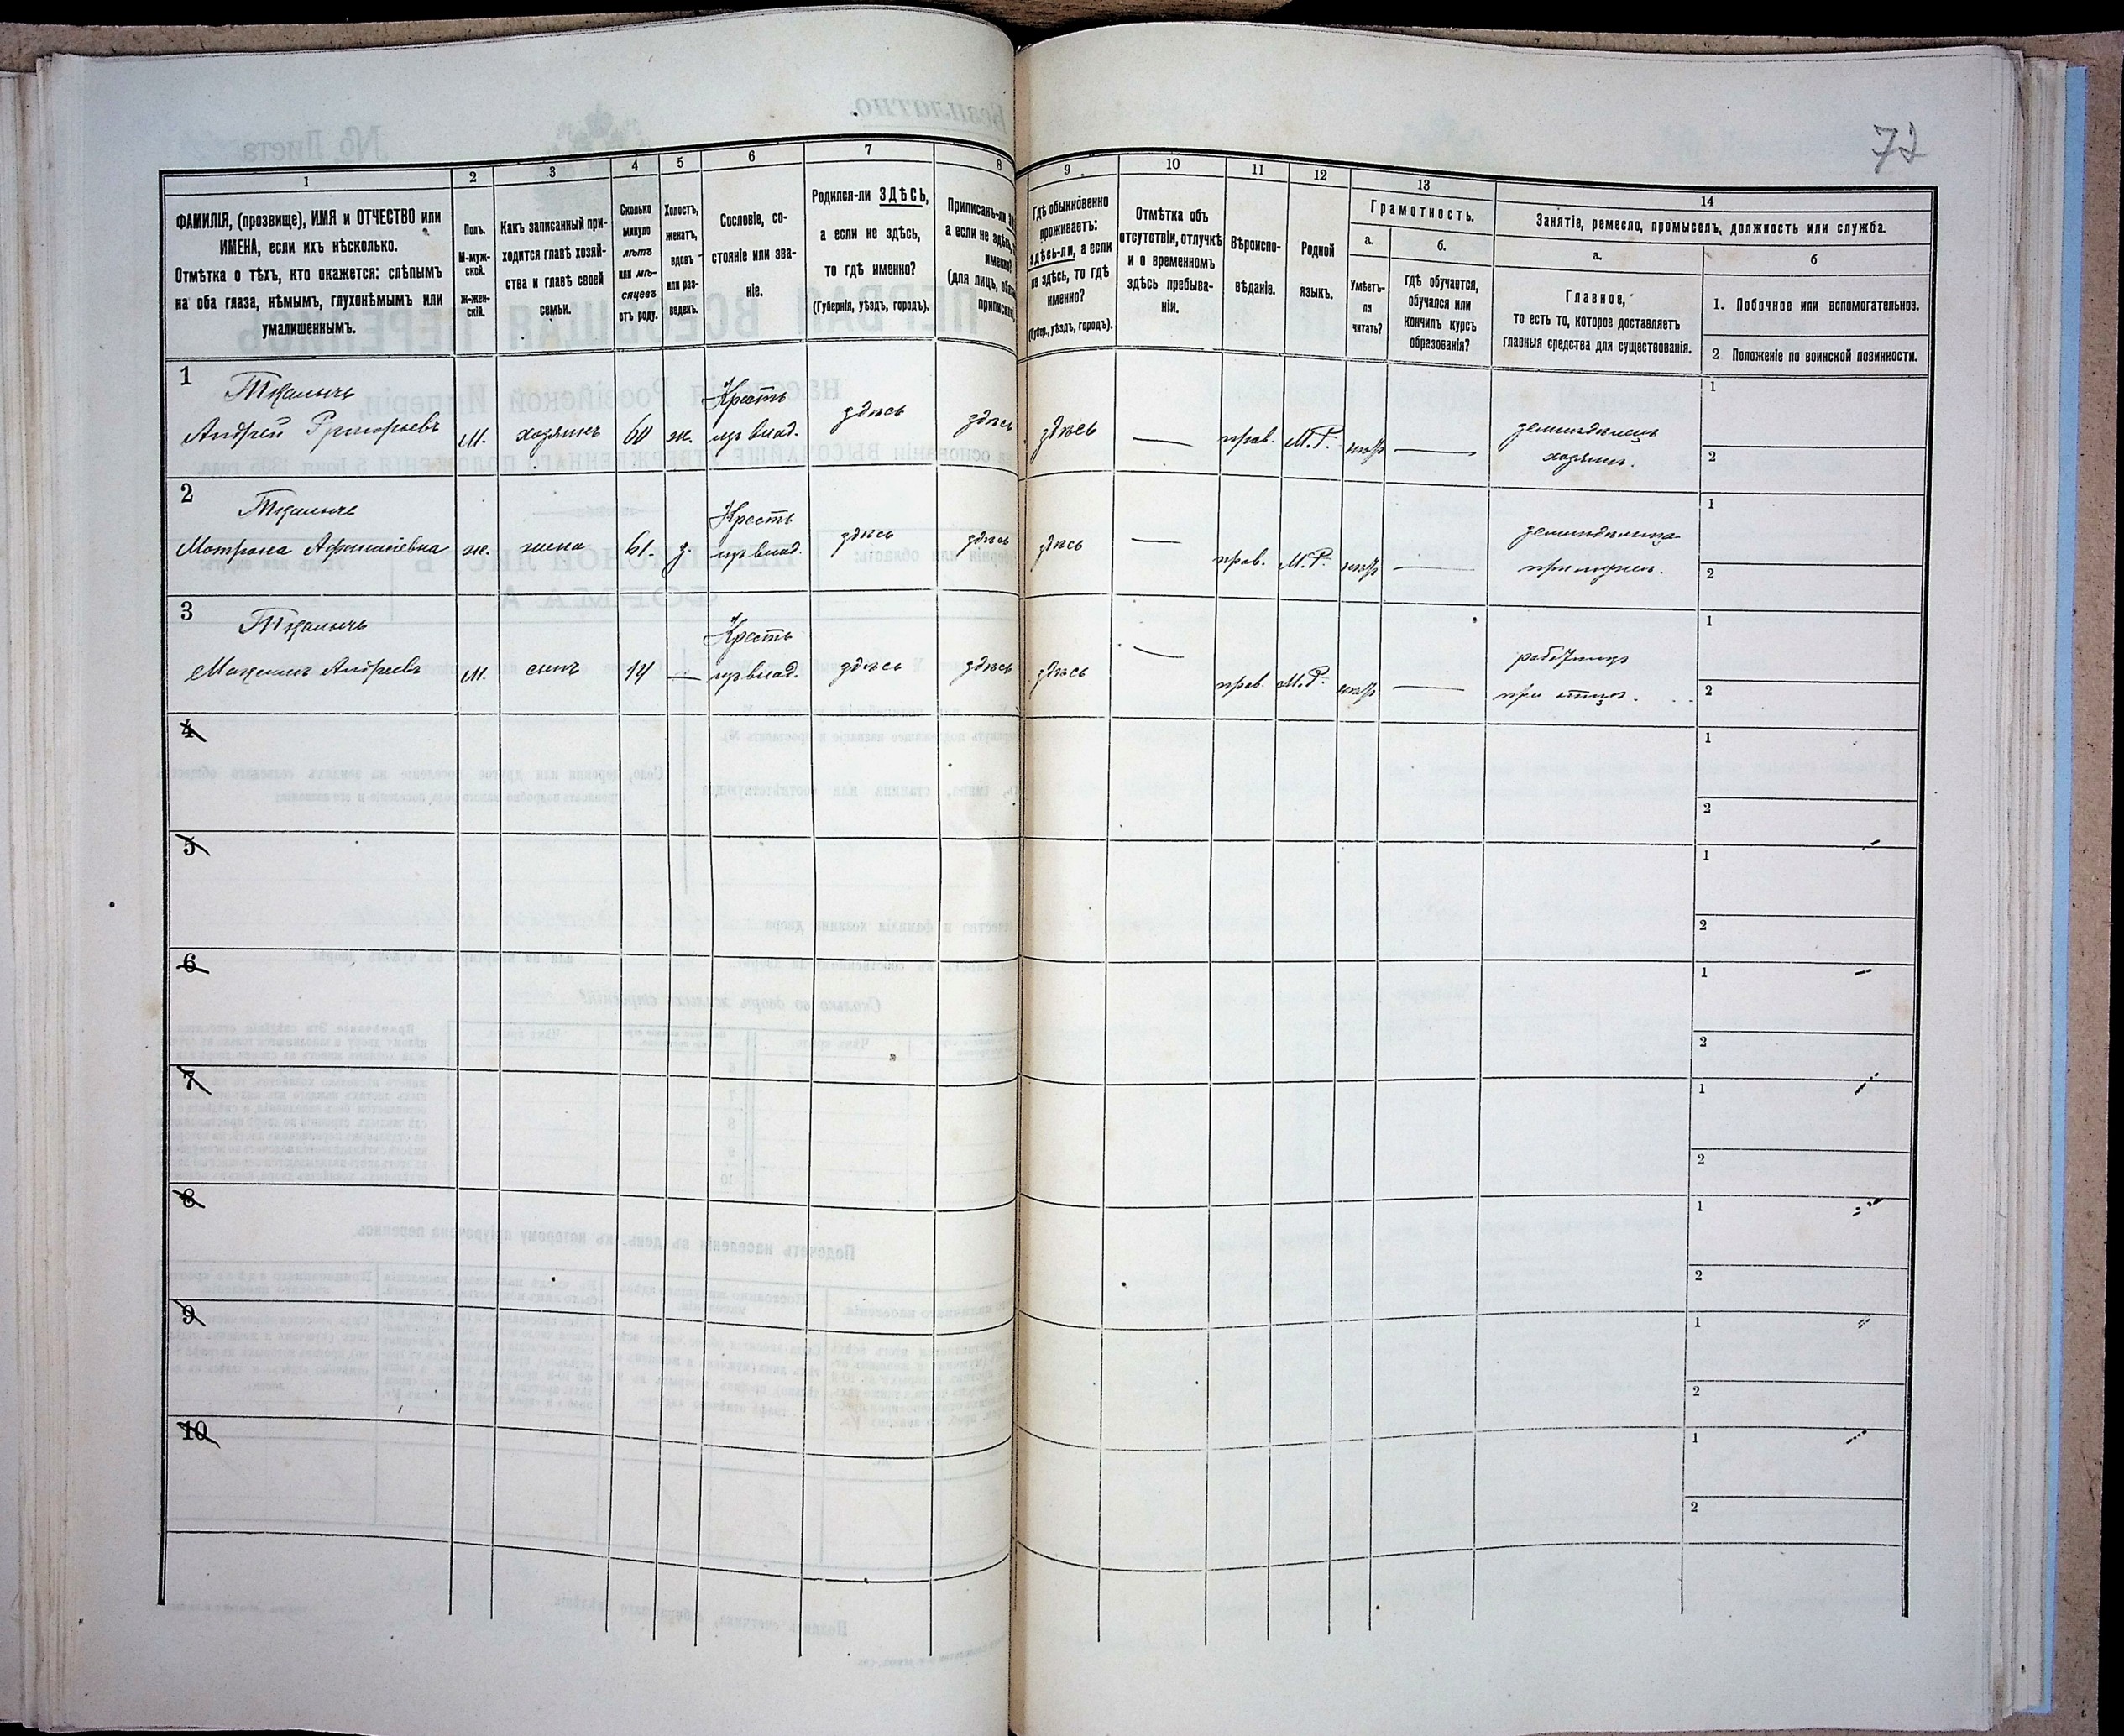 72
1 2 3 4 5 6 7 8 9 10 11 12 13 14
ФАМИЛІЯ, (прозвище), ИМЯ и ОТЧЕСТВО или
ИМЕНА, если ихъ нѣсколько.
Отмѣтка о тѣхъ, кто окажется: слѣпымъ
на оба глаза, нѣмымъ, глухонѣмымъ или
умалишеннымъ.
Полъ.
М-муж-
ской.
ж-жен-
скій.
Какъ записанный при-
ходится главѣ хозяй-
ства и главѣ своей
семьи.
Сколько
минуло
лѣтъ
или мѣ-
сяцевъ
отъ роду.
Холостъ,
женатъ,
вдовъ
или раз-
веденъ.
Сословіе, со-
стояніе или зва-
ніе.
Родился-ли ЗДѢСЬ,
а если не здѣсь,
то гдѣ именно?
(Губернія, уѣздъ, городъ).
Приписанъ-ли
а если не здѣсь,
именно?
(для лицъ,
Гдѣ обыкновенно
проживаетъ:
здѣсь-ли, а если
не здѣсь, то гдѣ
именно?
(Губер., уѣздъ, городъ).
Отмѣтка объ
отсутствіи, отлучкѣ
и о временномъ
здѣсь пребыва-
ніи.
Вѣроиспо-
вѣданіе.
Родной
языкъ.
Грамотность.
а.
Умѣетъ-
ли
читать?
б.
гдѣ обучается,
обучался или
кончилъ курсъ
образованія?
Занятіе, ремесло, промыселъ, должность или служба.
а.
Главное,
то есть то, которое доставляетъ
главныя средства для существованія.
б
1. Побочное или вспомогательное.
2 Положеніе по воинской повинности.
1 Ткаличъ Крестъ
Андрей Григорьевъ м. хозяинъ 60 ж. изъ влад. здѣсь здѣсь здѣсь — прав. М.Р. — земледѣлецъ
хозяинъ.
1
2
2 Ткаличъ Крестъ
Мотрона Афанасіевна ж. жена 61. з. изъ влад. здѣсь здѣсь здѣсь — прав. М.Р. — земледѣлица
при мужѣ.
1
2
3 Ткаличъ Крестъ
Максимъ Андреевъ м. сынъ 14 — изъ влад. здѣсь здѣсь здѣсь — прав. М.Р. — работникъ
при отцѣ.
1
2
4
1
2
5
1
2
6
1
2
7
1
2
8
1
2
9
1
2
10
1
2